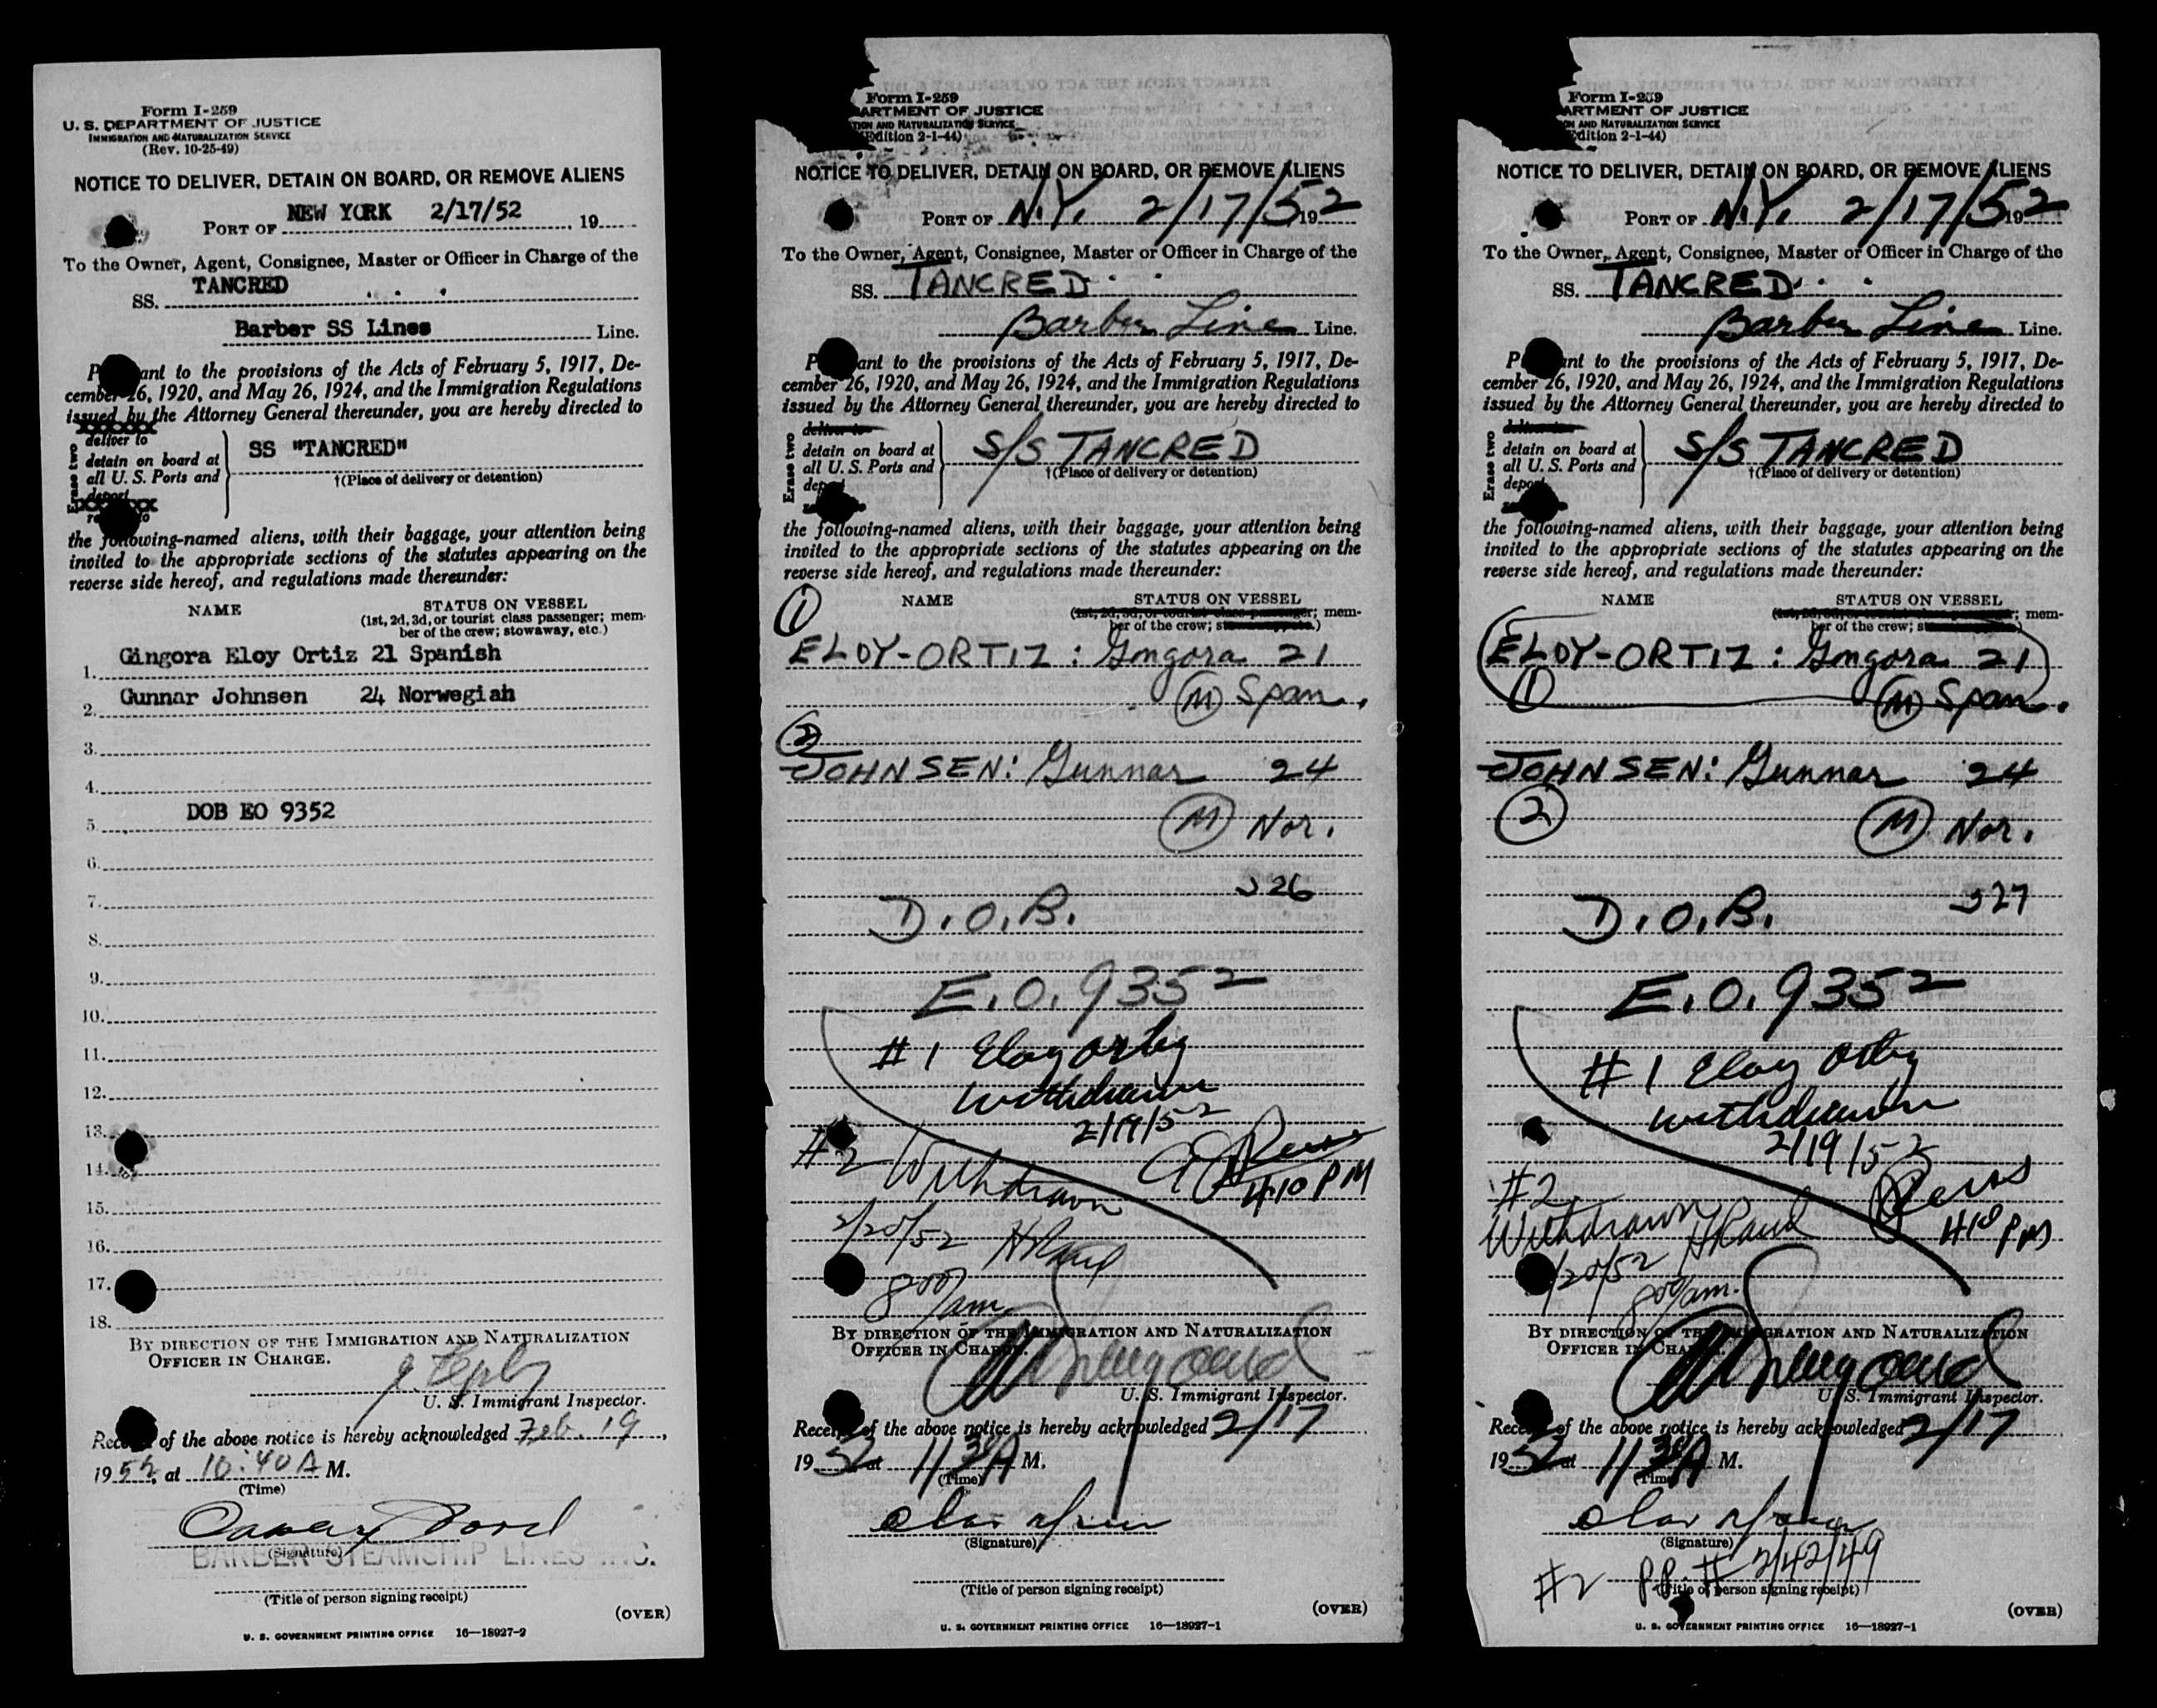 Form I-259
U. S. DEPARTMENT OF JUSTICE
IMMIGRATION AND NATURALIZATION SERVICE
(Rev. 10-25-49)
NOTICE TO DELIVER, DETAIN ON BOARD, OR REMOVE ALIENS
PORT OF NEW YORK 2/17/52, 19
To the Owner, Agent, Consignee, Master or Officer in Charge of the
SS. TANCRED
Barber SS Lines Line.
P ant to the provisions of the Acts of February 5, 1917, De-
cember 26, 1920, and May 26, 1924, and the Immigration Regulations
issued by the Attorney General thereunder, you are hereby directed to
Erase two
deliver to
detain on board at
all U. S. Ports and
deport
SS "TANCRED"
†(Place of delivery or detention)
the following-named aliens, with their baggage, your attention being
invited to the appropriate sections of the statutes appearing on the
reverse side hereof, and regulations made thereunder:
NAME STATUS ON VESSEL
(1st, 2d, 3d, or tourist class passenger; mem-
ber of the crew; stowaway, etc.)
1. Gingora Eloy Ortiz 21 Spanish
2. Gunnar Johnsen 24 Norwegiah
3.
4.
5. DOB EO 9352
6.
7.
8.
9.
10.
11.
12.
13.
14.
15.
16.
17.
18.
BY DIRECTION OF THE IMMIGRATION AND NATURALIZATION
OFFICER IN CHARGE.
U. S. Immigrant Inspector.
Receipt of the above notice is hereby acknowledged Feb. 19,
1952, at 10:40 A M.
(Time)
(Signature)
BARBER STEAMSHIP LINES INC.
(Title of person signing receipt)
(OVER)
U. S. GOVERNMENT PRINTING OFFICE 16—18927-2
Form I-259
ARTMENT OF JUSTICE
ION AND NATURALIZATION SERVICE
(Edition 2-1-44)
NOTICE TO DELIVER, DETAIN ON BOARD, OR REMOVE ALIENS
PORT OF N.Y. 2/17/52 19
To the Owner, Agent, Consignee, Master or Officer in Charge of the
SS. TANCRED
Barber Line Line.
P ant to the provisions of the Acts of February 5, 1917, De-
cember 26, 1920, and May 26, 1924, and the Immigration Regulations
issued by the Attorney General thereunder, you are hereby directed to
Erase two
deliver to
detain on board at
all U. S. Ports and
depo
S/S TANCRED
†(Place of delivery or detention)
the following-named aliens, with their baggage, your attention being
invited to the appropriate sections of the statutes appearing on the
reverse side hereof, and regulations made thereunder:
1 NAME STATUS ON VESSEL
(1st, 2d, 3d, or tourist class passenger; mem-
ber of the crew; stowaway, etc.)
ELOY-ORTIZ: Gongora 21
M Span.
2
JOHNSEN: Gunnar 24
M Nor.
526
D.O.B.
E.O. 9352
#1 Eloy Ortiz
withdrawn
2/19/52
#2 Withdrawn
410 PM
2/20/52
800/am
BY DIRECTION OF THE IMMIGRATION AND NATURALIZATION
OFFICER IN CHARGE.
U. S. Immigrant Inspector.
Receipt of the above notice is hereby acknowledged 2/17
1952 at 11 30 A M.
(Time)
(Signature)
(Title of person signing receipt)
(OVER)
U. S. GOVERNMENT PRINTING OFFICE 16—18927-1
Form I-259
ARTMENT OF JUSTICE
ON AND NATURALIZATION SERVICE
Edition 2-1-44)
NOTICE TO DELIVER, DETAIN ON BOARD, OR REMOVE ALIENS
PORT OF N.Y. 2/17/52 19
To the Owner, Agent, Consignee, Master or Officer in Charge of the
SS. TANCRED
Barber Line Line.
P ant to the provisions of the Acts of February 5, 1917, De-
cember 26, 1920, and May 26, 1924, and the Immigration Regulations
issued by the Attorney General thereunder, you are hereby directed to
Erase two
deliver to
detain on board at
all U. S. Ports and
depor
S/S TANCRED
†(Place of delivery or detention)
the following-named aliens, with their baggage, your attention being
invited to the appropriate sections of the statutes appearing on the
reverse side hereof, and regulations made thereunder:
NAME STATUS ON VESSEL
(1st, 2d, 3d, or tourist class passenger; mem-
ber of the crew; stowaway, etc.)
ELOY-ORTIZ: Gongora 21
1 M Span.
JOHNSEN: Gunnar 24
2 M Nor.
527
D.O.B.
E.O. 9352
#1 Eloy Ortiz
withdrawn
2/19/52
#2
Withdrawn
410 PM
2/20/52
800/am.
BY DIRECTION OF THE IMMIGRATION AND NATURALIZATION
OFFICER IN CHARGE.
U. S. Immigrant Inspector.
Receipt of the above notice is hereby acknowledged 2/17
1952 at 11 30 A M.
(Time)
(Signature)
#2 PP. # 2/42/49
(Title of person signing receipt)
(OVER)
U. S. GOVERNMENT PRINTING OFFICE 16—18927-1